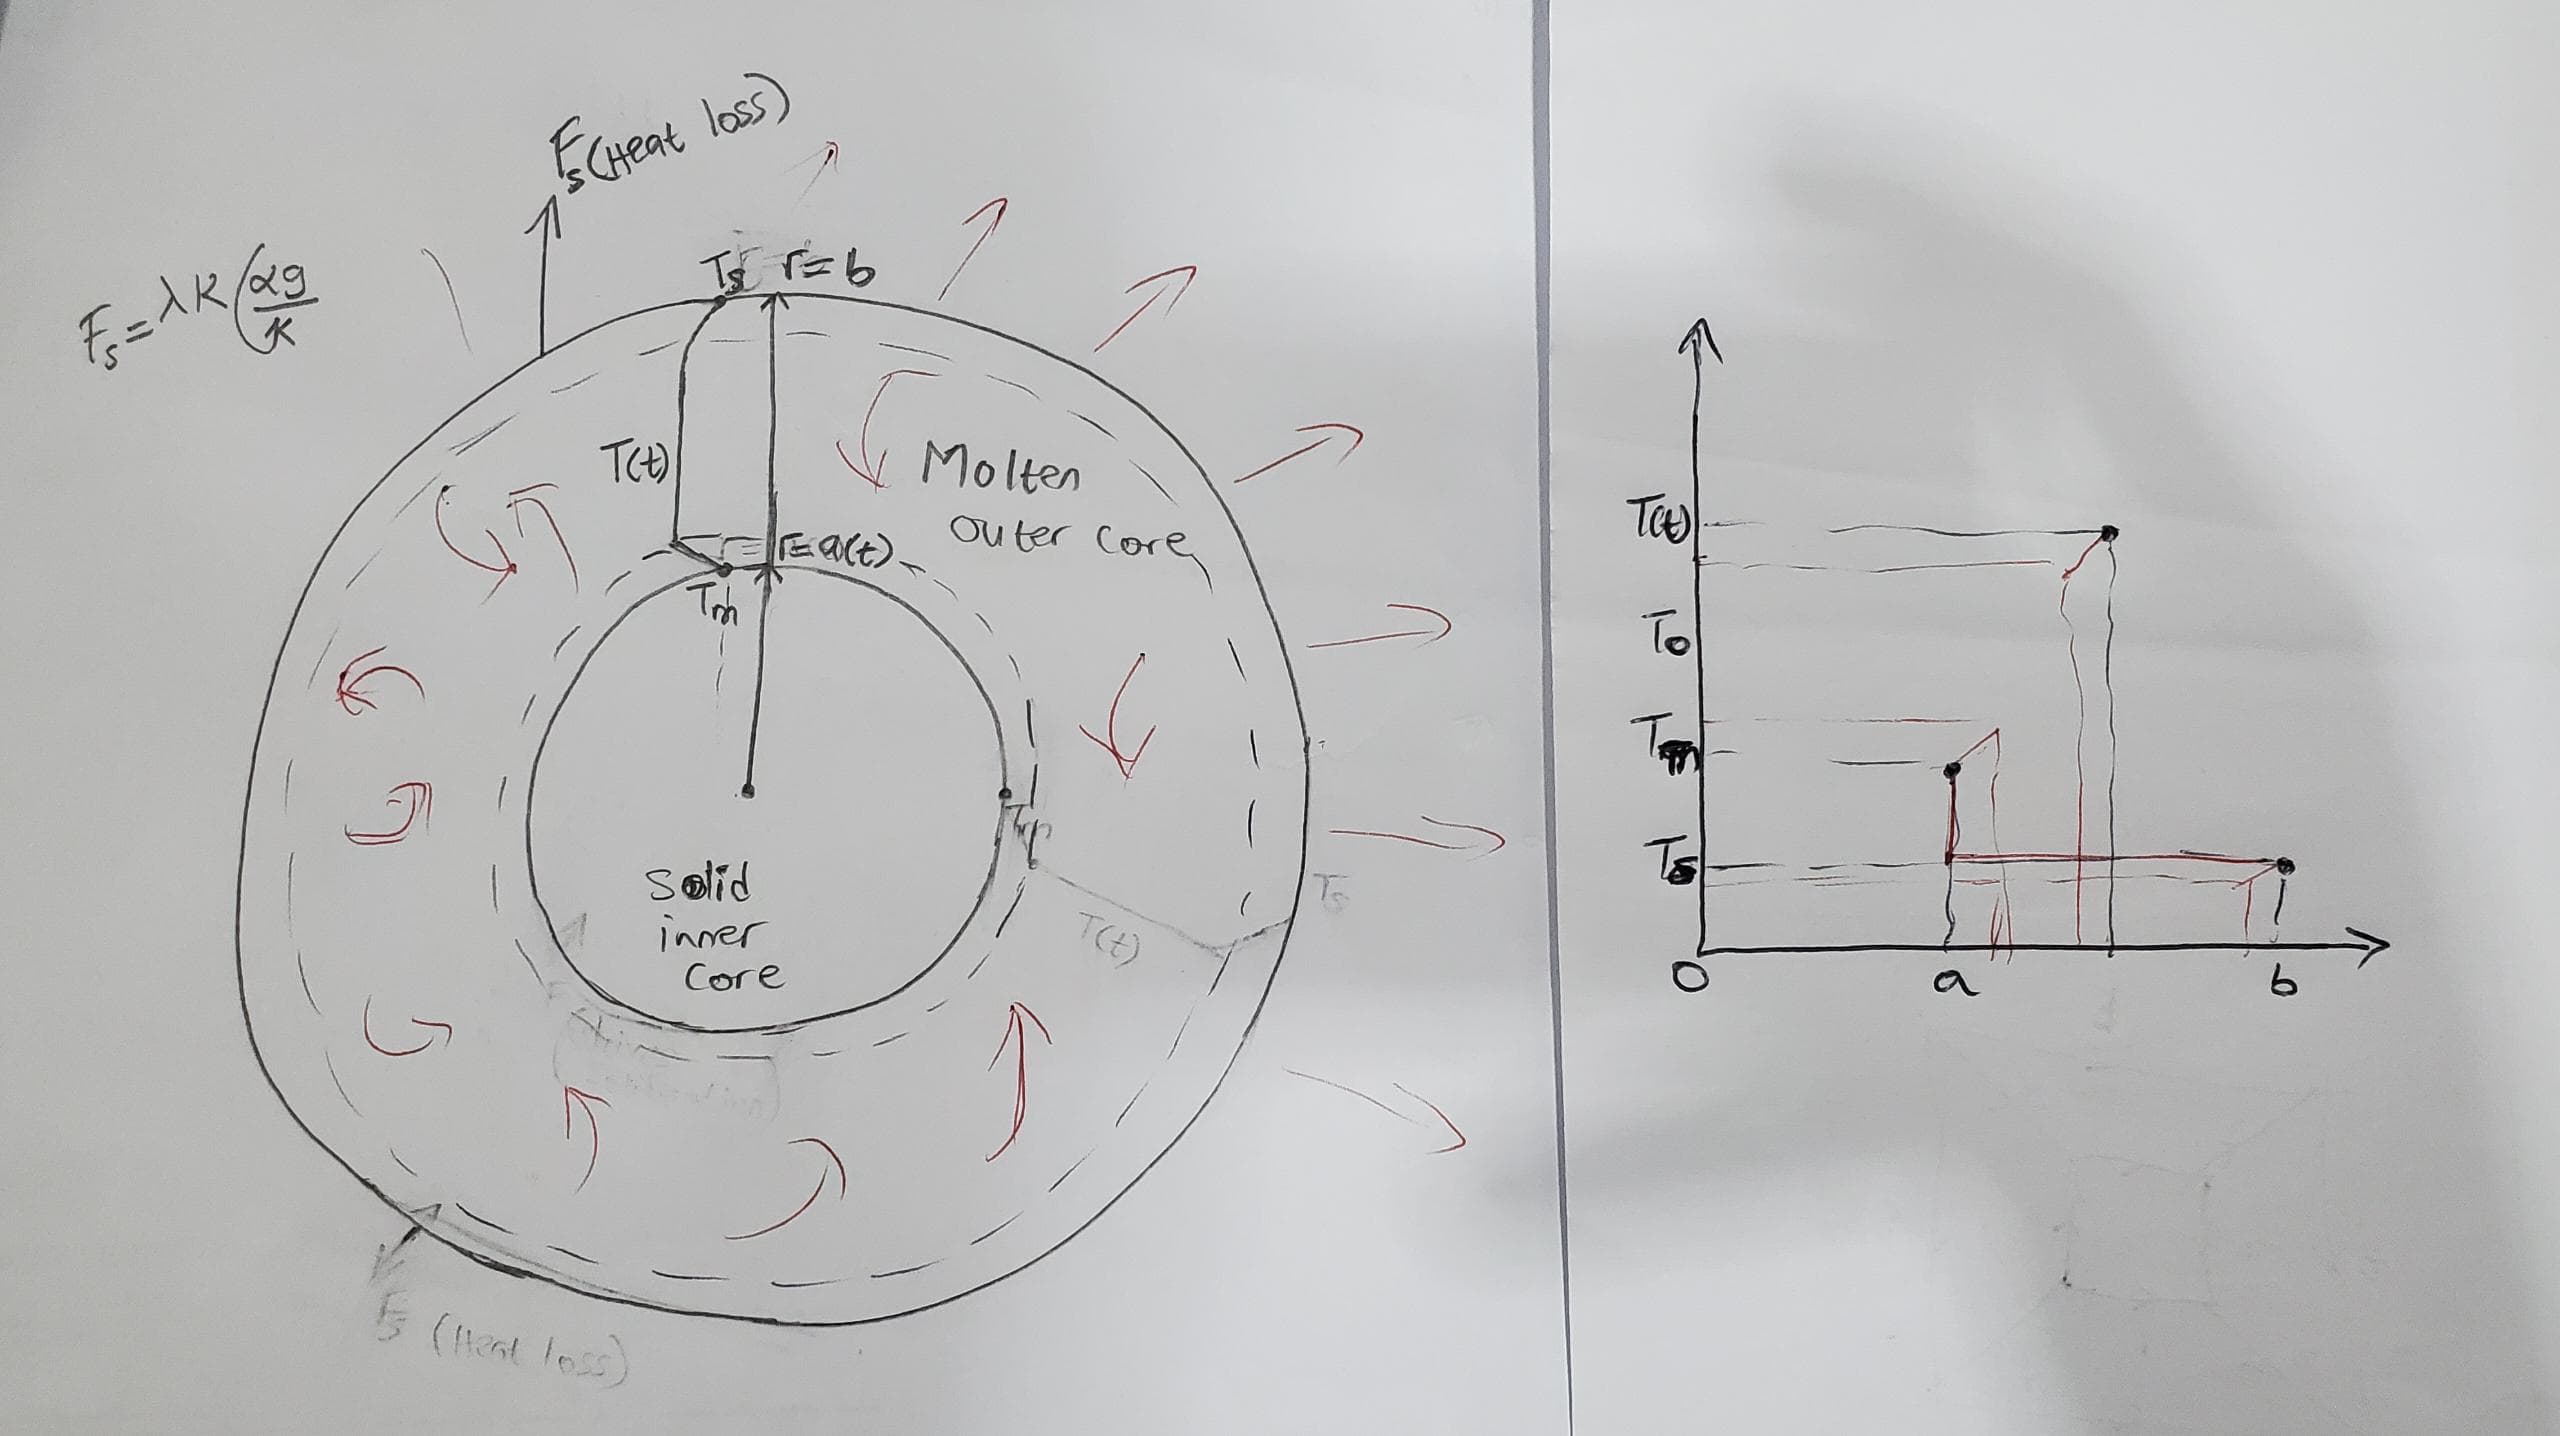 Fs (Heat loss)
Fs = λK(αg/K
Ts r=b
T(t)
Molten
outer core
r=a(t)
Tm
Solid
inner
core
Tm
T(t)
Ts
Fs (Heat loss)
T(t)
To
Tm
Ts
O
a
b